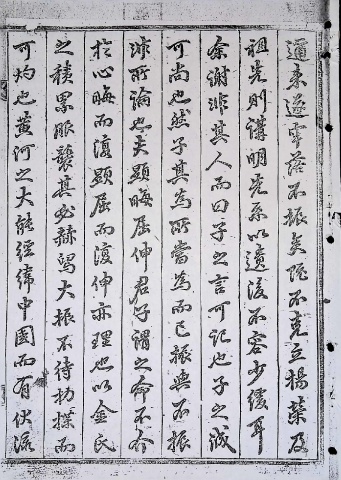 邇來遂零落不振矣阮不克立揚業及
祖先則講明先系以遺後不容少緩耳
余謝非其人而曰子之言可記也子之誠
可尚也然子其為所當為而已振與不振
非所論也夫顯晦屈伸君子謂之命不介
於心晦而復顯屈而復伸亦理也以金氏
之積累服襲其必赫舄大振不待揚揲而
可灼也黃河之大能經緯中國而有伏流